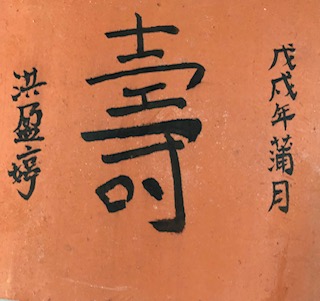 戊戌年蒲月
壽
洪盈婷